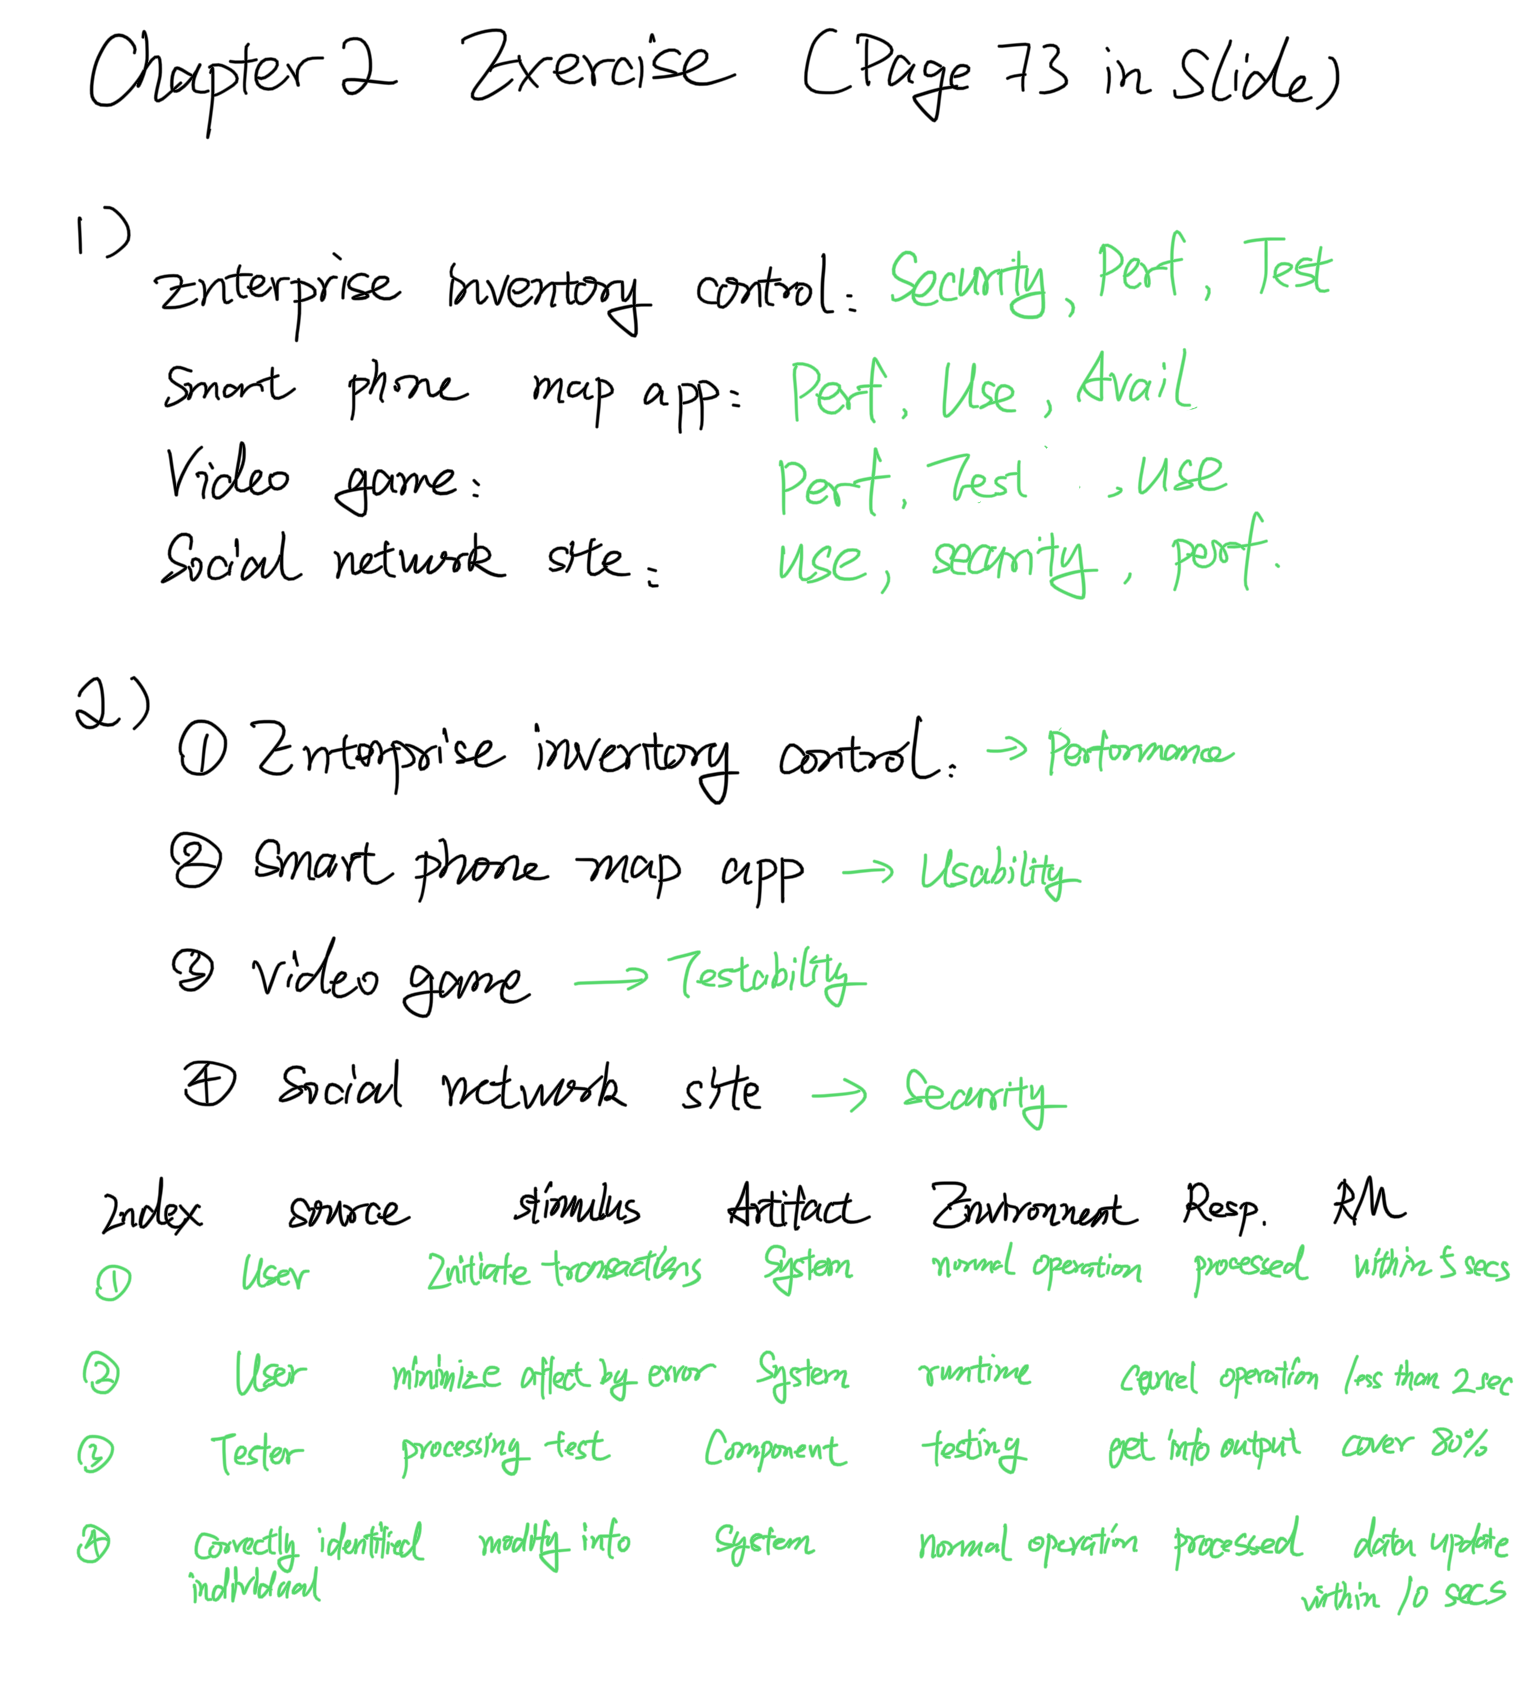 Chapter 2 Exercise (Page 73 in Slide)
1)
Enterprise inventory control: Security, Perf, Test
Smart phone map app: Perf, Use, Avail
Video game: Perf, Test, use
Social network site: use, security, perf.
2)
① Enterprise inventory control: → Performance
② Smart phone map app → Usability
③ Video game → Testability
④ Social network site → Security
Index source stimulus Artifact Environment Resp. RM
① User Initiate transactions System normal operation processed within 5 secs
② User minimize affect by error System runtime cancel operation less than 2 sec
③ Tester processing test Component testing get info output cover 80%
④ Correctly identified modify info System normal operation processed data update
individual within 10 secs